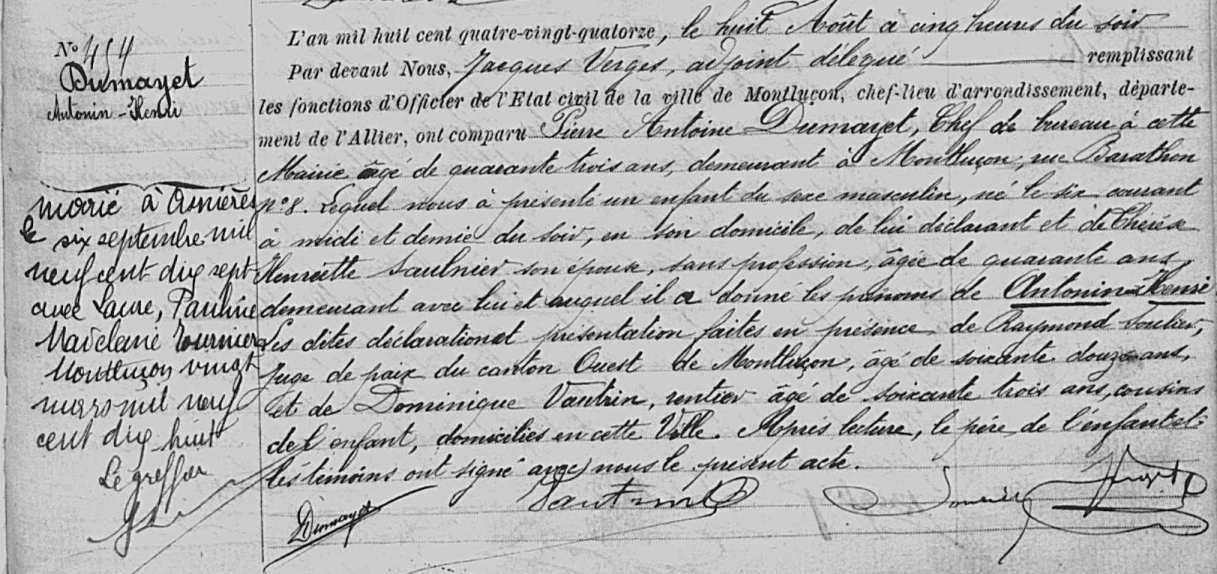 N° 454
Dumayet
Antonin-Henri
marié à Asnières
le six septembre mil
neuf cent dix sept
avec Laure, Pauline
Madelaine Tournier
Montluçon vingt
mars mil neuf
cent dix huit
Le greffier
L'an mil huit cent quatre-vingt-quatorze, le huit Août à cinq heures du soir
Par devant Nous, Jacques Verges, adjoint délégué remplissant
les fonctions d'Officier de l'Etat civil de la ville de Montluçon, chef-lieu d'arrondissement, départe-
ment de l'Allier, ont comparu Pierre Antoine Dumayet, Chef de bureau à cette
Mairie âgé de quarante trois ans, demeurant à Montluçon, rue Barathon
n° 8. Lequel nous à présenté un enfant du sexe masculin, né le six courant
à midi et demie du soir, en son domicile, de lui déclarant et de Thérèse
Henriette Saulnier son épouse, sans profession, âgée de quarante ans,
demeurant avec lui et auquel il a donné les prénoms de Antonin-Henri
Les dites déclaration et présentation faites en présence de Raymond
Juge de paix du canton Ouest de Montluçon, âgé de soixante douze ans,
et de Dominique Vautrin, rentier âgé de soixante trois ans, cousins
de l'enfant, domiciliés en cette Ville. Après lecture, le père de l'enfant et
les témoins ont signé avec nous le présent acte.
Dumayet
Vautrin